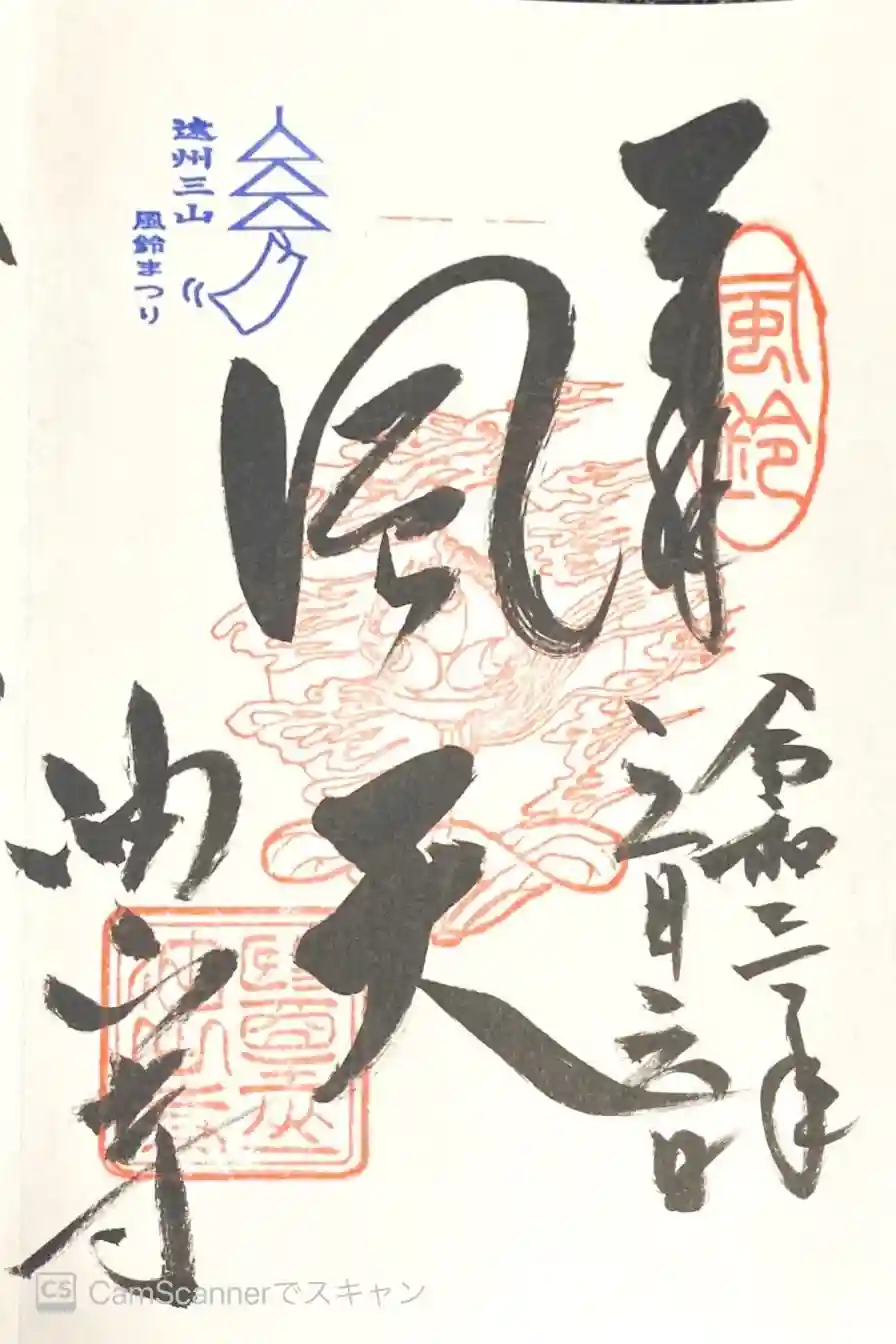 奉拝
風鈴
令和三年
六月六日
風天
油山寺
遠州三山
風鈴まつり
CS CamScannerでスキャン